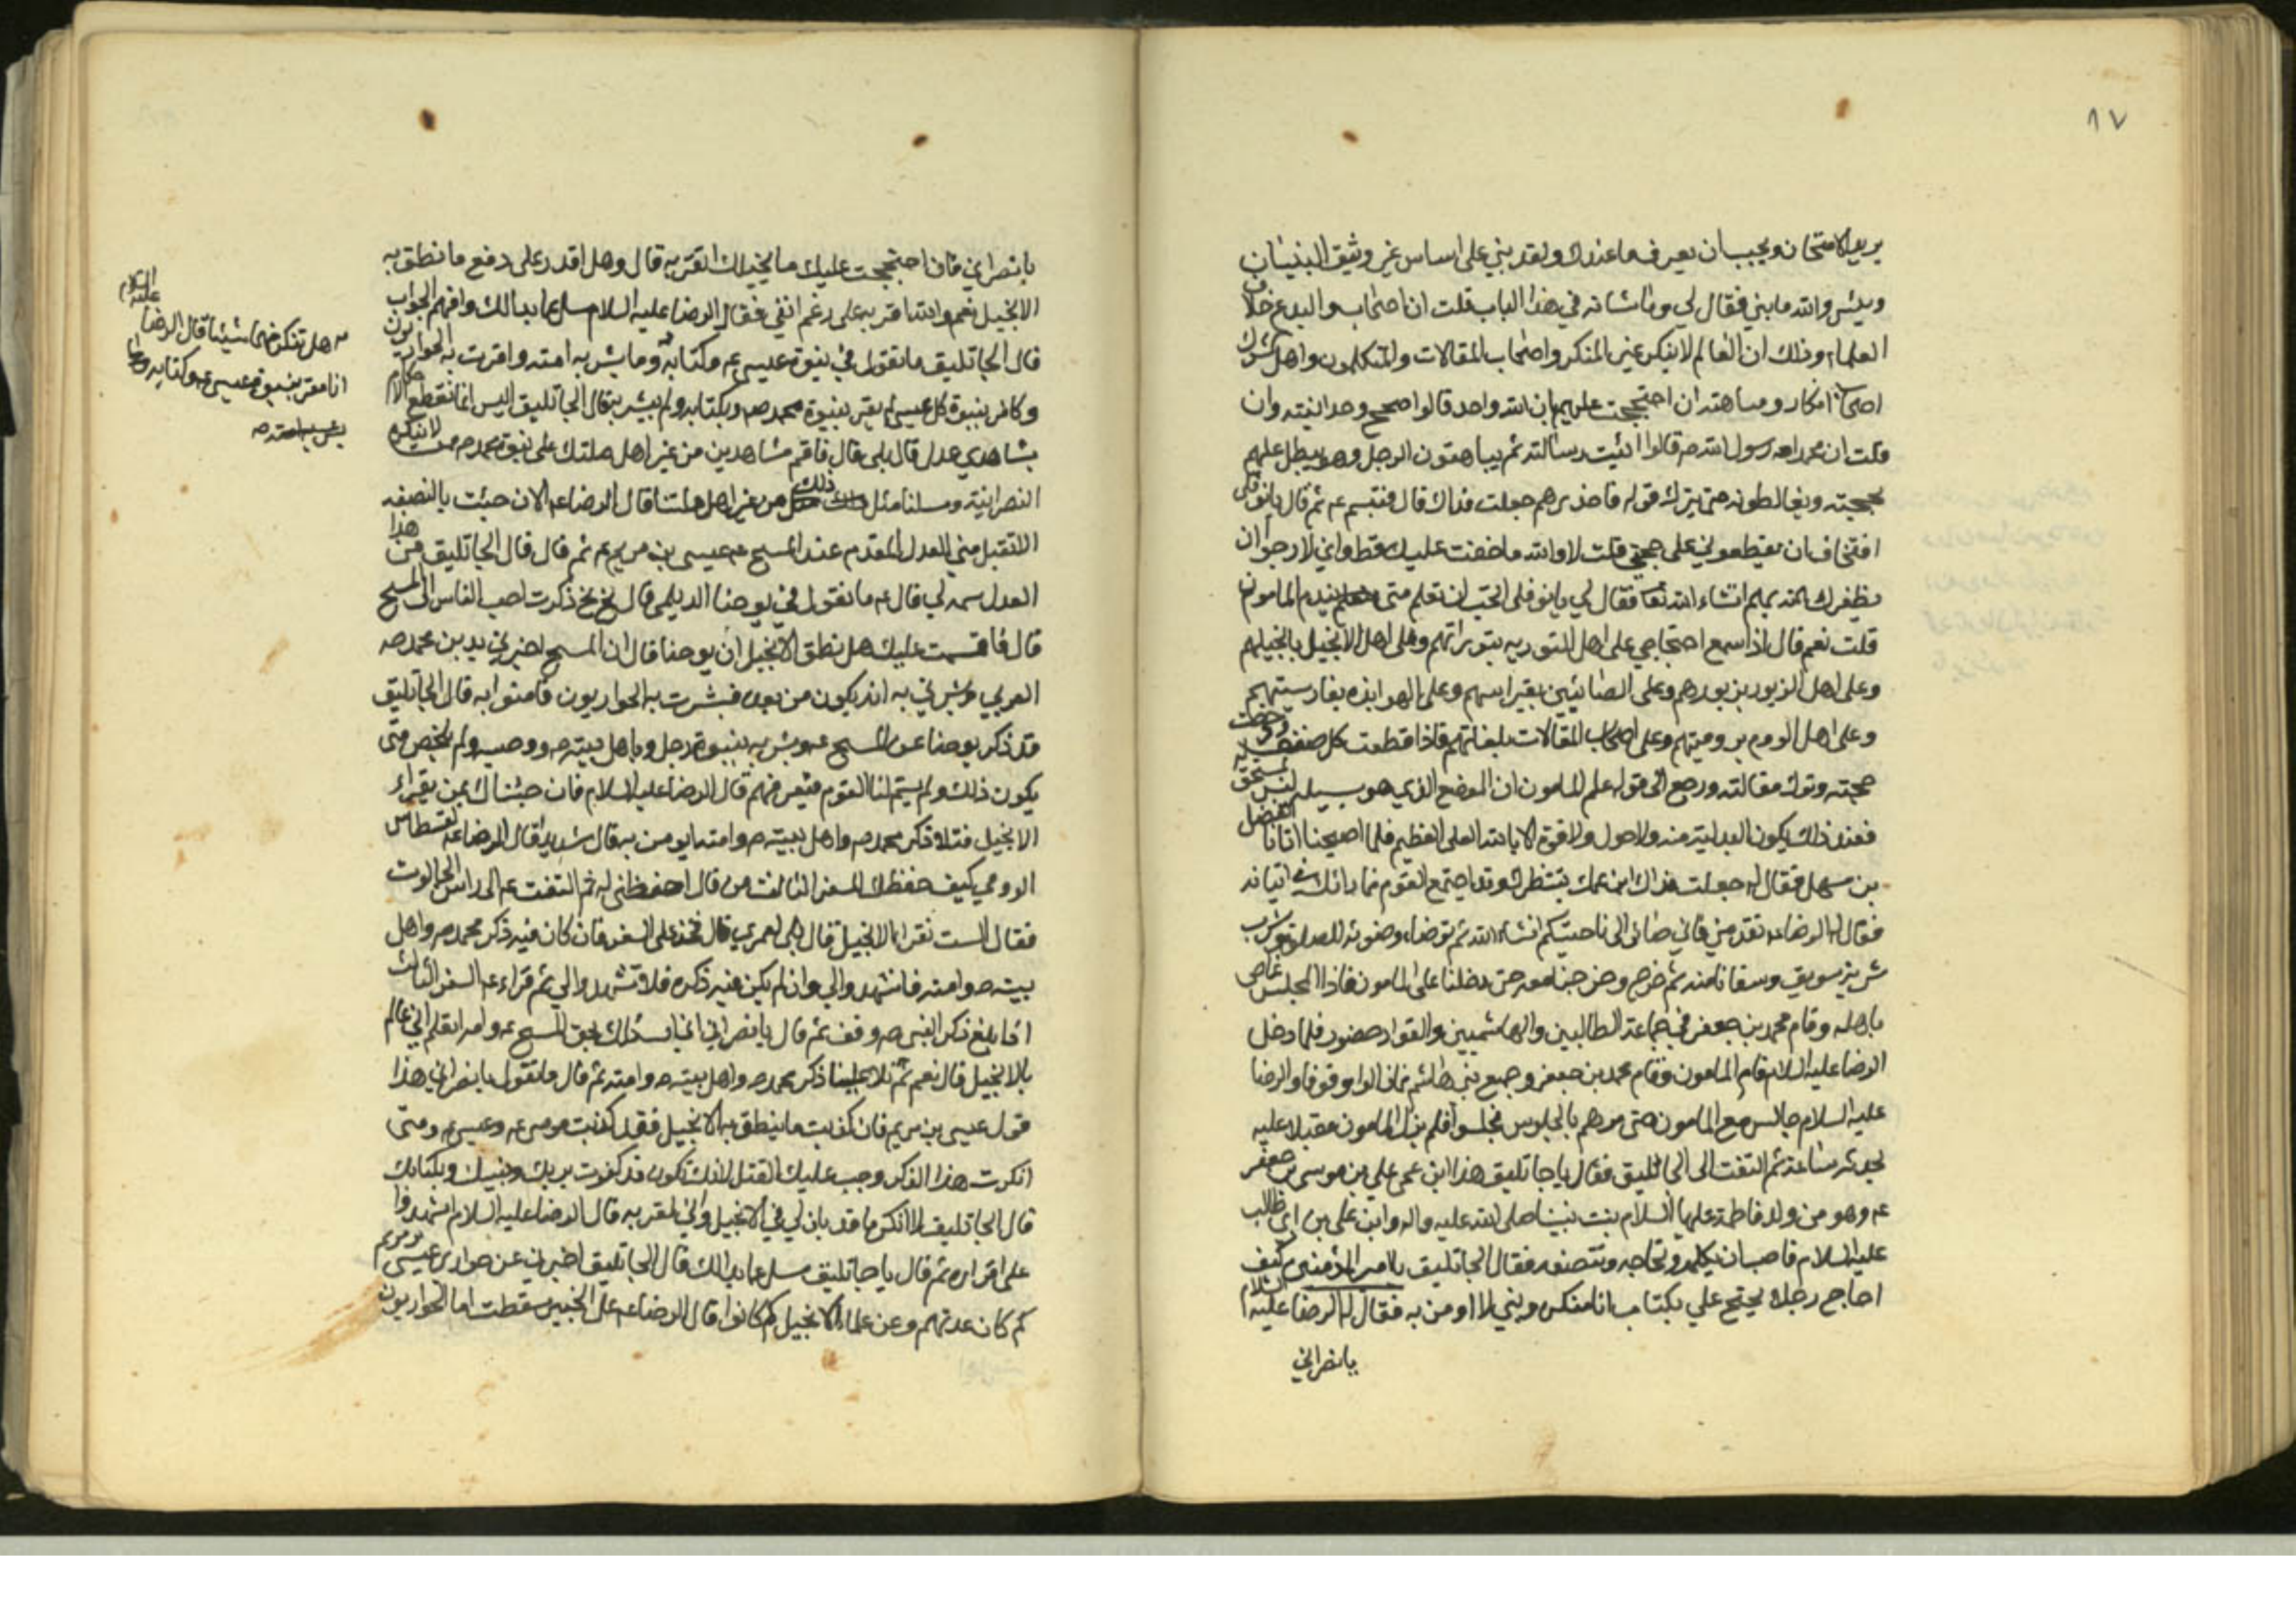 ١٧
يريد الامتحان ويجب ان يعرف ما عندك ولقد بني على اساس غير وثيق البنيان
وبئس والله ما بني فقال لي وما شانه في هذا الباب قلت ان اصحاب البدع خلاف
العلماء وذلك ان العالم لا ينكر غير المنكر واصحاب المقالات والمتكلمون واهل الشرك
اصحاب انكار ومباهتة ان احتججت عليهم بان الله واحد قالوا صحح وحدانيته وان
قلت ان محمدا رسول الله ص قالوا اثبت رسالته ثم يباهتون الرجل وهو يبطل عليهم
بحجته ويغالطونه حتى يترك قوله فاحذرهم جعلت فداك قال فتبسم ع ثم قال يا نوفلي
افتخاف ان يقطعوني على حجتي قلت لا والله ما خفت عليك قط واني لارجو ان
يظفرك الله بهم انشاء الله تعا فقال لي يا نوفلي اتحب ان تعلم متى يندم المامون
قلت نعم قال اذا سمع احتجاجي على اهل التورية بتوراتهم وعلى اهل الانجيل بانجيلهم
وعلى اهل الزبور بزبورهم وعلى الصابئين بعبرانيتهم وعلى الهرابذه بفارسيتهم
وعلى اهل الروم بروميتهم وعلى اصحاب المقالات بلغاتهم فاذا قطعت كل صنف ودحضت
حجته وترك مقالته ورجع الى قولي علم المامون ان الموضع الذي هو بسبيله ليس بمستحق له
فعند ذلك يكون الندامة منه ولا حول ولا قوة الا بالله العلي العظيم فلما اصبحنا اتانا الفضل
بن سهل فقال له جعلت فداك ابن عمك ينتظرك وقد اجتمع القوم فما رائك في اتيانه
فقال له الرضا ع تقدمني فاني صائر الى ناحيتكم انشاء الله ثم توضاء وضوئه للصلوة وشرب
شربة سويق وسقانا منه ثم خرج وخرجنا معه حتى دخلنا على المامون فاذا المجلس غاص
باهله وقام محمد بن جعفر في جماعة الطالبين والهاشميين والقواد حضور فلما دخل
الرضا عليه السلام قام المامون وقام محمد بن جعفر وجميع بني هاشم فما زالوا وقوفا والرضا
عليه السلام جالس مع المامون حتى مرهم بالجلوس فجلسوا فلم يزل المامون مقبلا عليه
يحدثه ساعة ثم التفت الى الجاثليق فقال يا جاثليق هذا ابن عمي علي بن موسى بن جعفر
ع وهو من ولد فاطمة عليها السلام بنت نبينا صلى الله عليه واله وابن علي بن ابي طالب
عليه السلام فاحب ان يكلمه وتحاجه وتنصفه فقال الجاثليق يا امير المؤمنين كيف
احاج رجلا يحتج علي بكتاب انا منكره ونبي لا اومن به فقال له الرضا عليه السلام
يا نصراني
يا نصراني فان احتججت عليك بانجيلك اتقر به قال وهل اقدر على دفع ما نطق به
الانجيل نعم والله اقر به على رغم انفي فقال الرضا عليه السلام سل عما بدا لك وافهم الجواب
قال الجاثليق ما تقول في نبوة عيسى ع وكتابه وما بشر به امته واقرت به الحواريون
وكافر بنبوة كل عيسى لم يقر بنبوة محمد ص وبكتابه ولم يبشر به قال الجاثليق اليس انما تقطع الاحكام
بشاهدي عدل قال بلى قال فاقم شاهدين من غير اهل ملتك على نبوة محمد ص ممن لا تنكره
النصرانية وسلنا مثل ذلك من غير اهل ملتنا قال الرضا ع الان جئت بالنصفه
الا تقبل مني العدل المقدم عند المسيح ع عيسى بن مريم ع ثم قال قال الجاثليق من هذا
العدل سمه لي قال ع ما تقول في يوحنا الديلمي قال بخ بخ ذكرت احب الناس الى المسيح
قال فاقسمت عليك هل نطق الانجيل ان يوحنا قال ان المسيح اخبرني بدين محمد ص
العربي وبشرني به انه يكون من بعده فبشرت به الحواريون فامنوا به قال الجاثليق
قد ذكر يوحنا عن المسيح ع وبشر به بنبوة رجل وباهل بيته ص ووصيه ولم يلخص متى
يكون ذلك ولم يسم لنا القوم فنعرفهم قال الرضا عليه السلام فان جئناك بمن يقراء
الانجيل فتلا ذكر محمد ص واهل بيته ص وامته ايومن به قال شديدا قال الرضا ع لقسطاس
الرومي كيف حفظك للسفر الثالث من قال احفظني له ثم التفت ع الى راس الجالوت
فقال الست تقراء الانجيل قال بلى لعمري قال فخذ على السفر فان كان فيه ذكر محمد ص واهل
بيته ص وامته فاشهدوا لي وان لم يكن فيه ذكره فلا تشهدوا لي ثم قراء ع السفر الثالث
اذا بلغ ذكر النبي ص وقف ثم قال يا نصراني اني اسئلك بحق المسيح ع وامه اتعلم اني عالم
بالانجيل قال نعم ثم تلا علينا ذكر محمد ص واهل بيته ص وامته ثم قال ما تقول يا نصراني هذا
قول عيسى بن مريم فان كذبت ما ينطق به الانجيل فقد كذبت موسى ع وعيسى ع ومتى
انكرت هذا الذكر وجب عليك القتل لانك تكون قد كفرت بربك ونبيك وبكتابك
قال الجاثليق لا انكر ما قد بان لي في الانجيل واني لمقر به قال الرضا عليه السلام اشهدوا
على اقراره ثم قال يا جاثليق سل عما بدا لك قال الجاثليق اخبرني عن حواري عيسى بن مريم
كم كان عدتهم وعن علماء الانجيل كم كانوا قال الرضا ع على الخبير سقطت اما الحواريون
هل تنكر منهما شيئا قال الرضا عليه السلام
انا مقر بنبوة عيسى ع وكتابه وما
بشر به امته